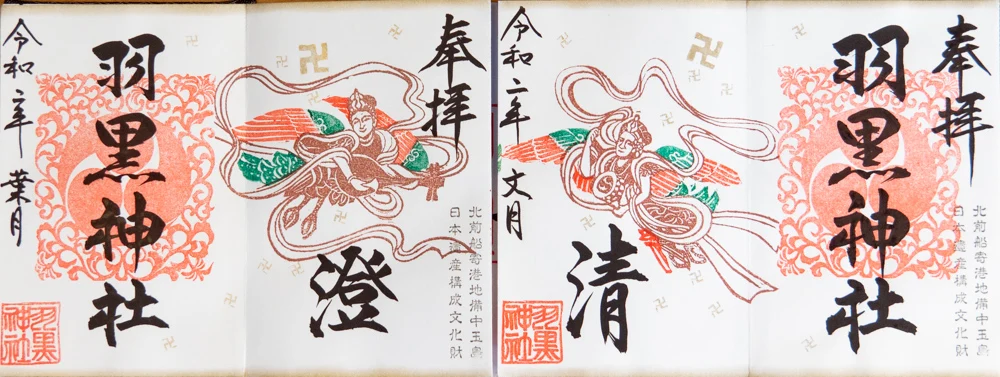 奉拝
北前船寄港地備中玉島
日本遺産構成文化財
澄
羽黒神社
令和二年 葉月
羽黒
神社
奉拝
北前船寄港地備中玉島
日本遺産構成文化財
羽黒神社
清
令和二年 文月
羽黒
神社